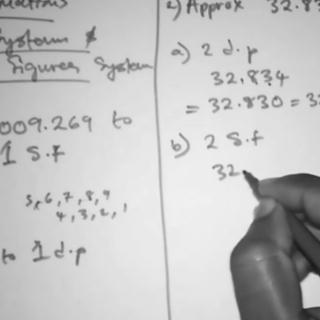 System &
Figures System
009.269 to
1 S.f
5,6,7,8,9
4,3,2,1
to 1 d.p
2) Approx 32.83
a) 2 d.p
32.834
= 32.830 = 32
b) 2 S.f
32